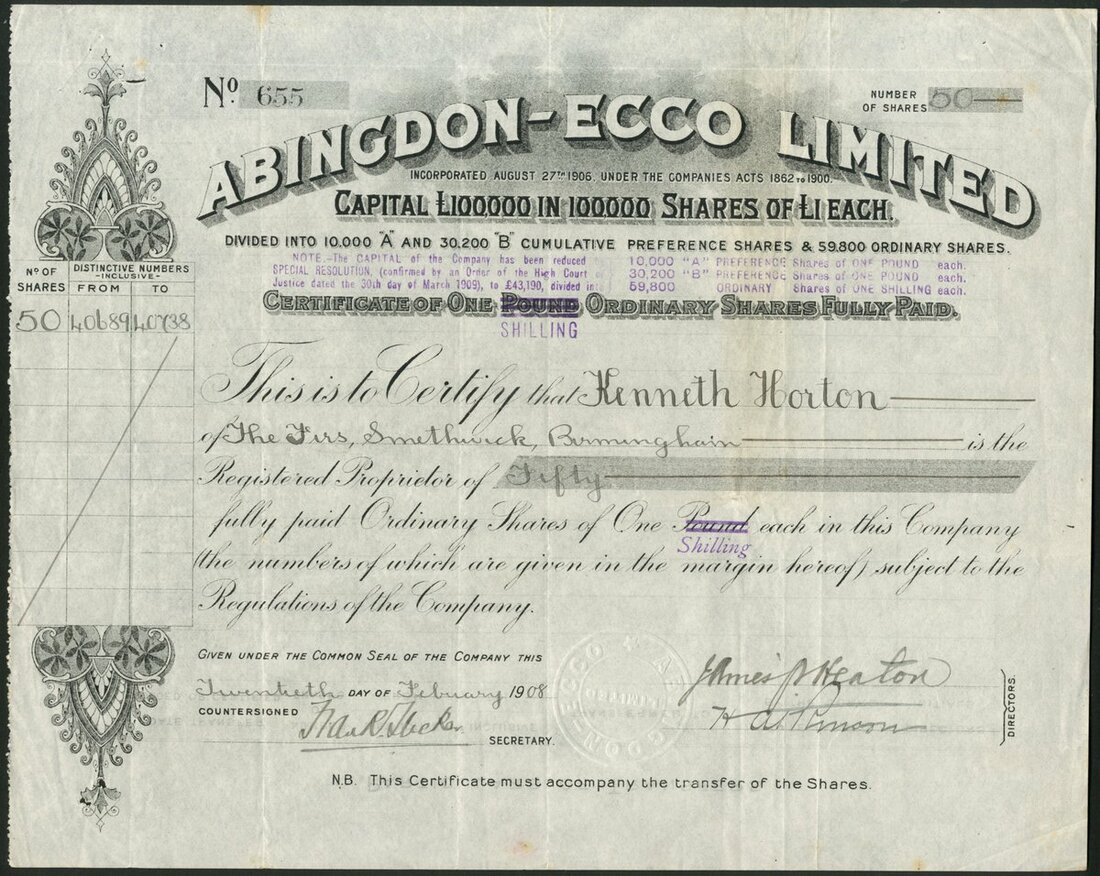 No. 655
NUMBER OF SHARES 50
ABINGDON-ECCO LIMITED
INCORPORATED AUGUST 27TH 1906, UNDER THE COMPANIES ACTS 1862 TO 1900.
CAPITAL £100000 IN 100000 SHARES OF £1 EACH.
DIVIDED INTO 10,000 "A" AND 30,200 "B" CUMULATIVE PREFERENCE SHARES & 59,800 ORDINARY SHARES.
NOTE.-The CAPITAL of the Company has been reduced by
SPECIAL RESOLUTION, (confirmed by an Order of the High Court of
Justice dated the 30th day of March 1909), to £43,190, divided into
10,000 "A" PREFERENCE Shares of ONE POUND each.
30,200 "B" PREFERENCE Shares of ONE POUND each.
59,800 ORDINARY Shares of ONE SHILLING each.
CERTIFICATE OF ONE POUND ORDINARY SHARES FULLY PAID.
SHILLING
No OF SHARES
DISTINCTIVE NUMBERS
-INCLUSIVE-
FROM TO
50 40689 40738
This is to Certify that Kenneth Horton
of The Firs, Smethwick, Birmingham is the
Registered Proprietor of Fifty
fully paid Ordinary Shares of One Pound each in this Company
Shilling
(the numbers of which are given in the margin hereof) subject to the
Regulations of the Company.
GIVEN UNDER THE COMMON SEAL OF THE COMPANY THIS
Twentieth DAY OF February 1908
COUNTERSIGNED
SECRETARY.
James P Heaton
DIRECTORS.
N.B. This Certificate must accompany the transfer of the Shares.